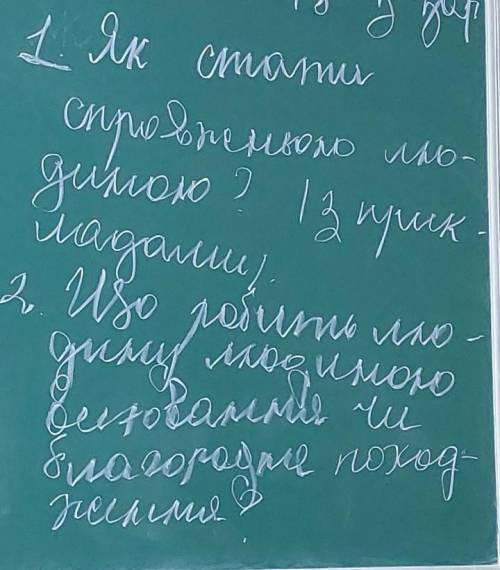 з
1. Як стати
справжньою лю-
диною? (з прик-
ладами).
2. Що робить лю-
дину людиною
виховання чи
благородне поход-
ження?